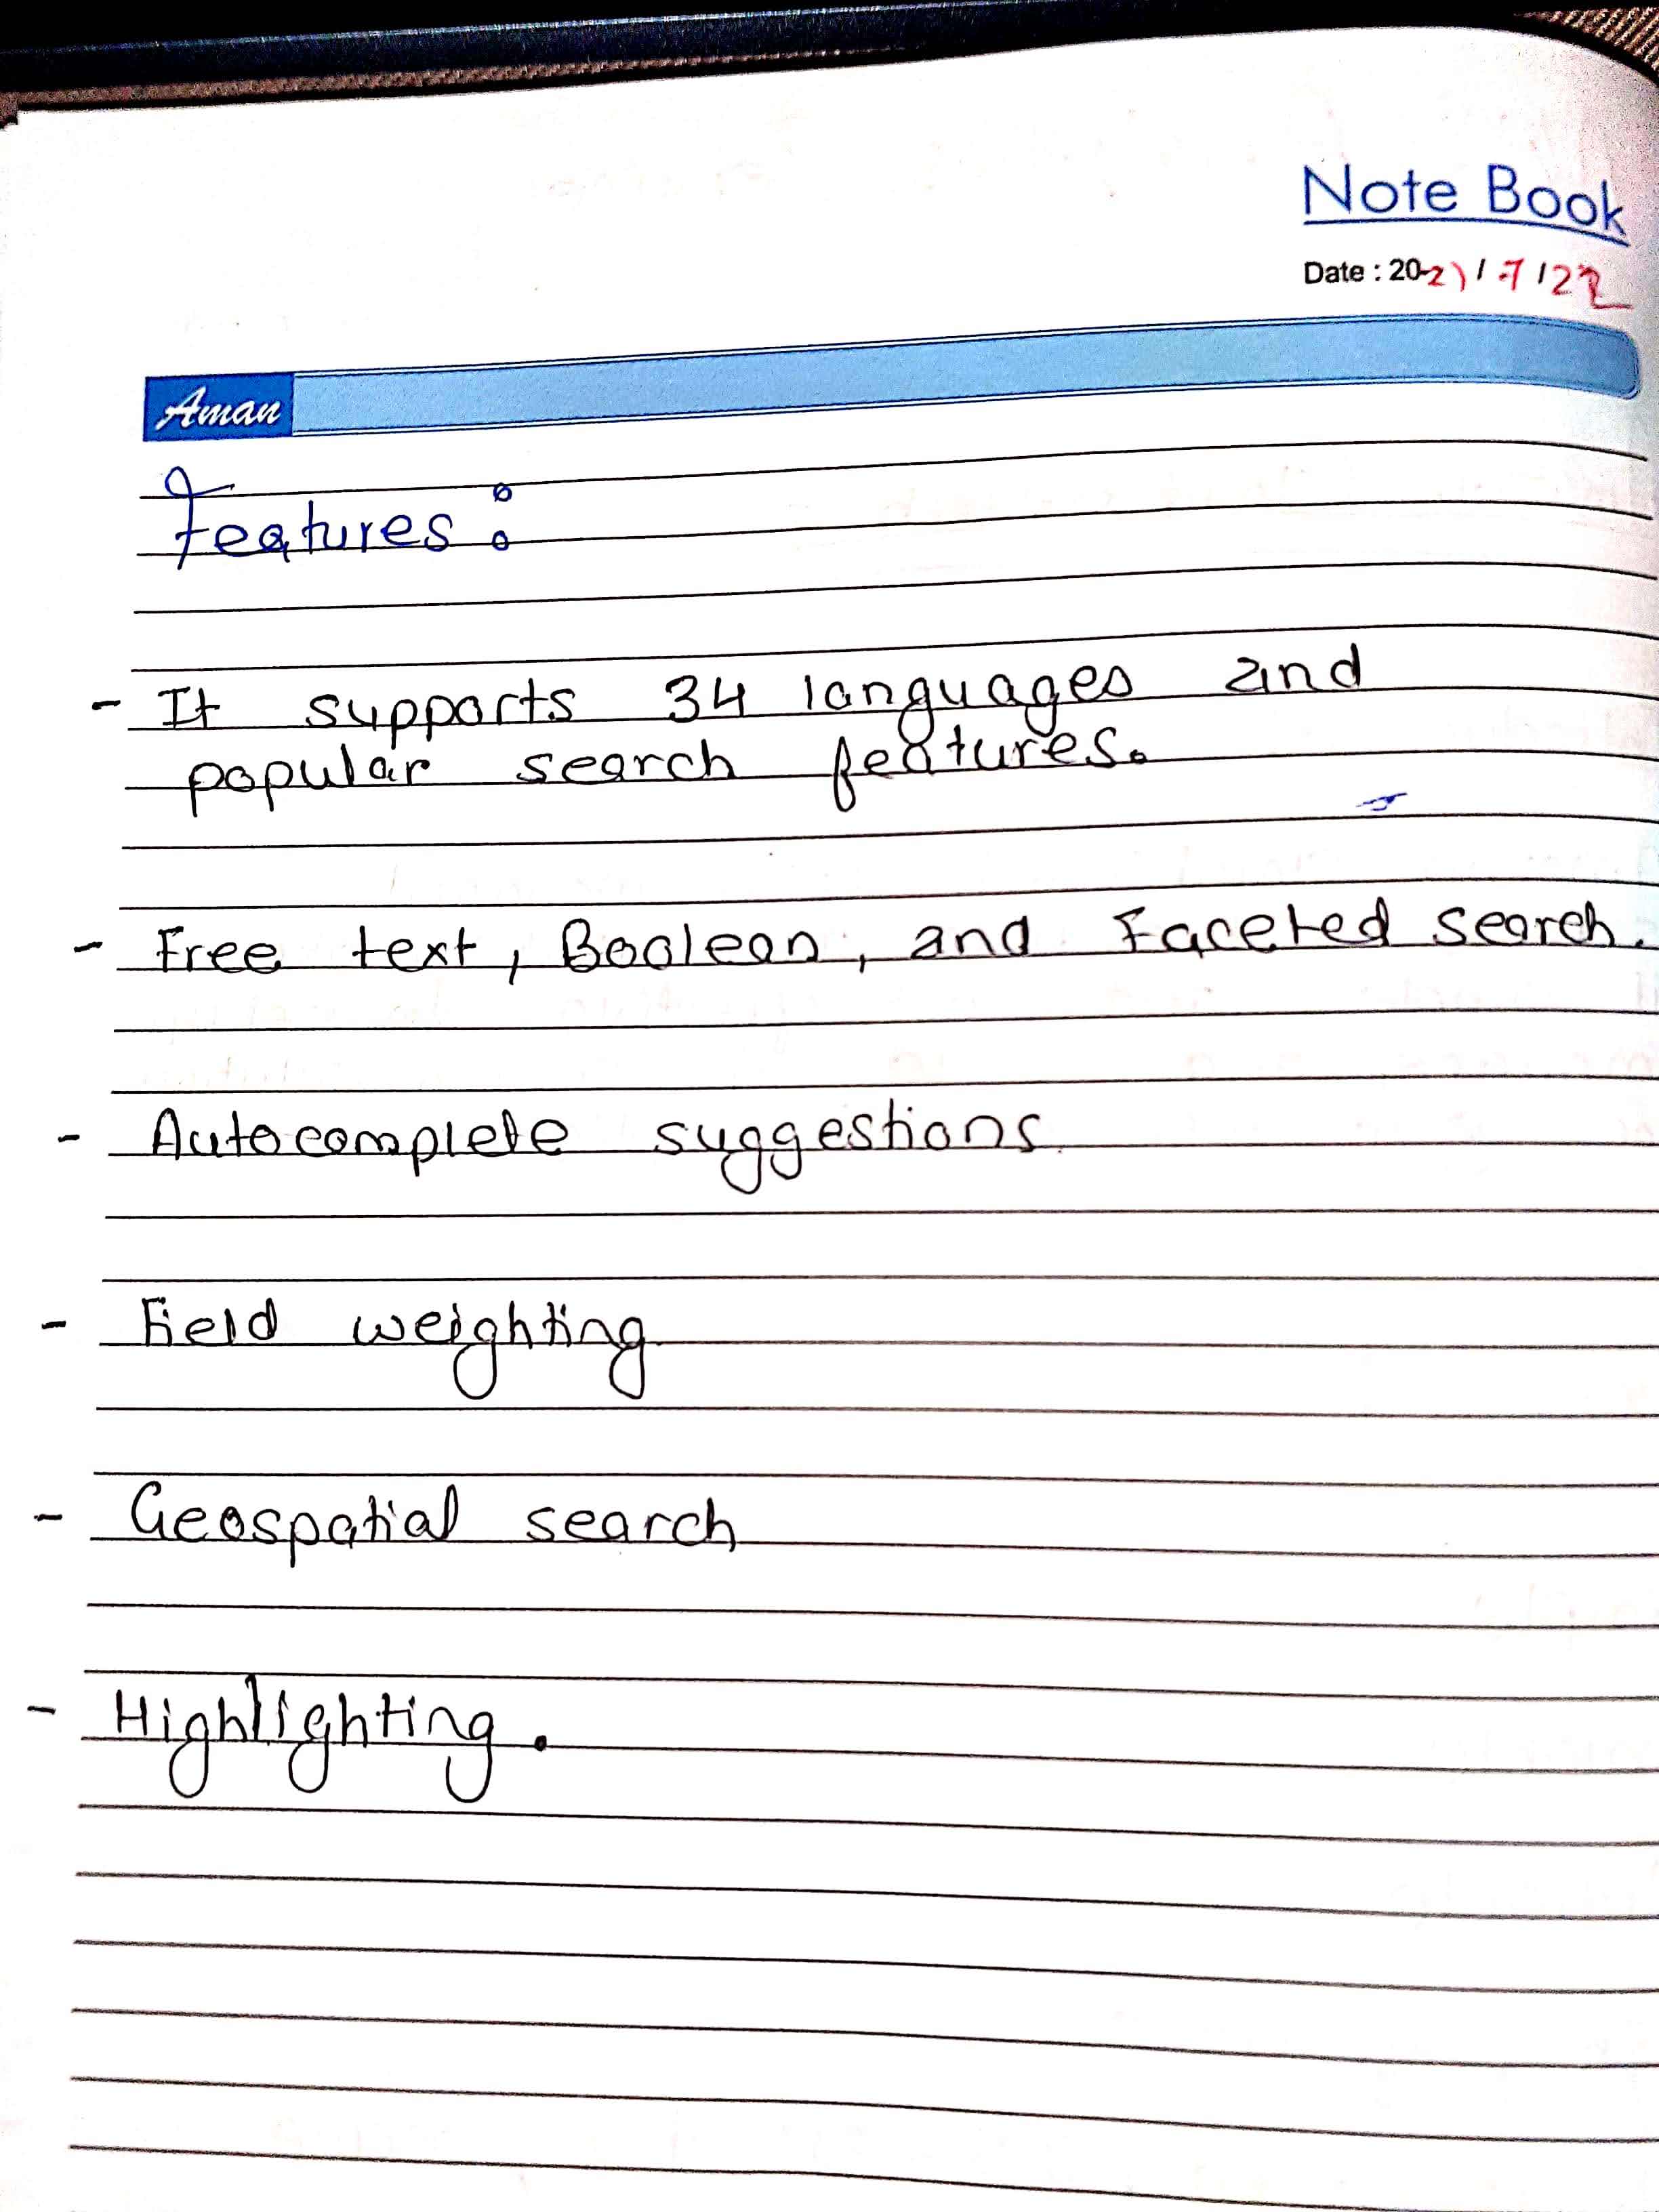 Note Book
Date : 20-21/7/22
Aman
Features :
- It supports 34 languages and
popular search features.
- Free text, Boolean, and Faceted search.
- Autocomplete suggestions.
- Field weighting
- Geospatial search
- Highlighting.